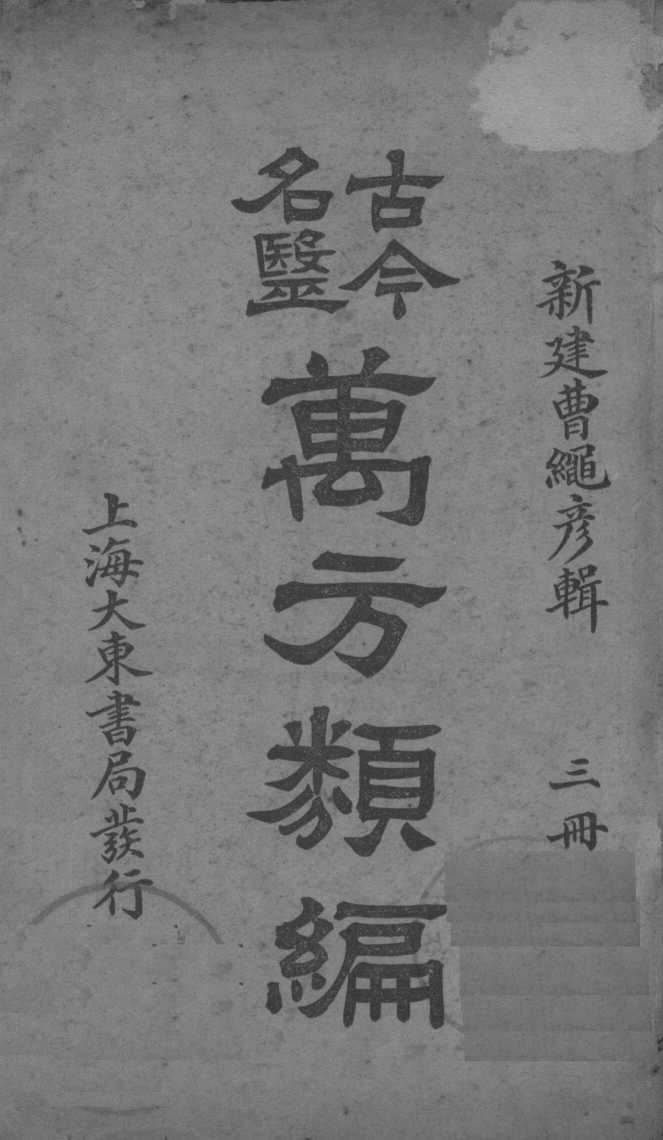 新建曹繩彥輯　三冊
古今
名醫
萬方類編
上海大東書局發行